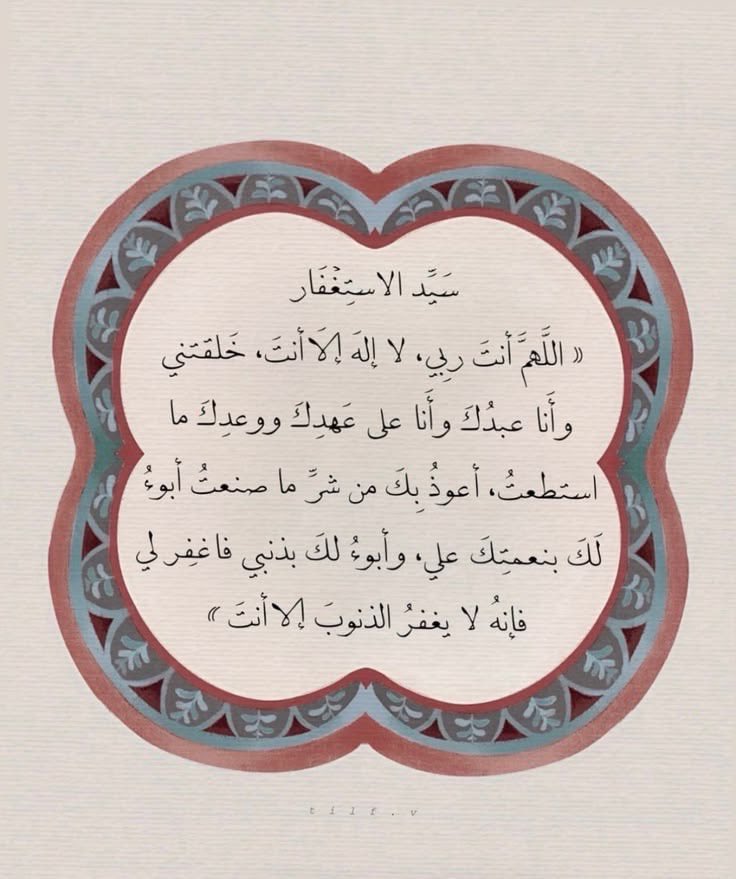 سَيِّد الاستِغْفَار
« اللَّهمَّ أنتَ ربِي، لا إلهَ إلاَ أنتَ، خَلقتني
وأَنا عبدُكَ وأَنا على عَهدِكَ ووعدِكَ ما
استطعتُ، أعوذُ بِكَ من شرِّ ما صنعتُ أبوءُ
لَكَ بنعمتِكَ علي، وأبوءُ لكَ بذنبي فاغفِر لي
فإنهُ لا يغفرُ الذنوبَ إلا أنتَ »
tilf.v